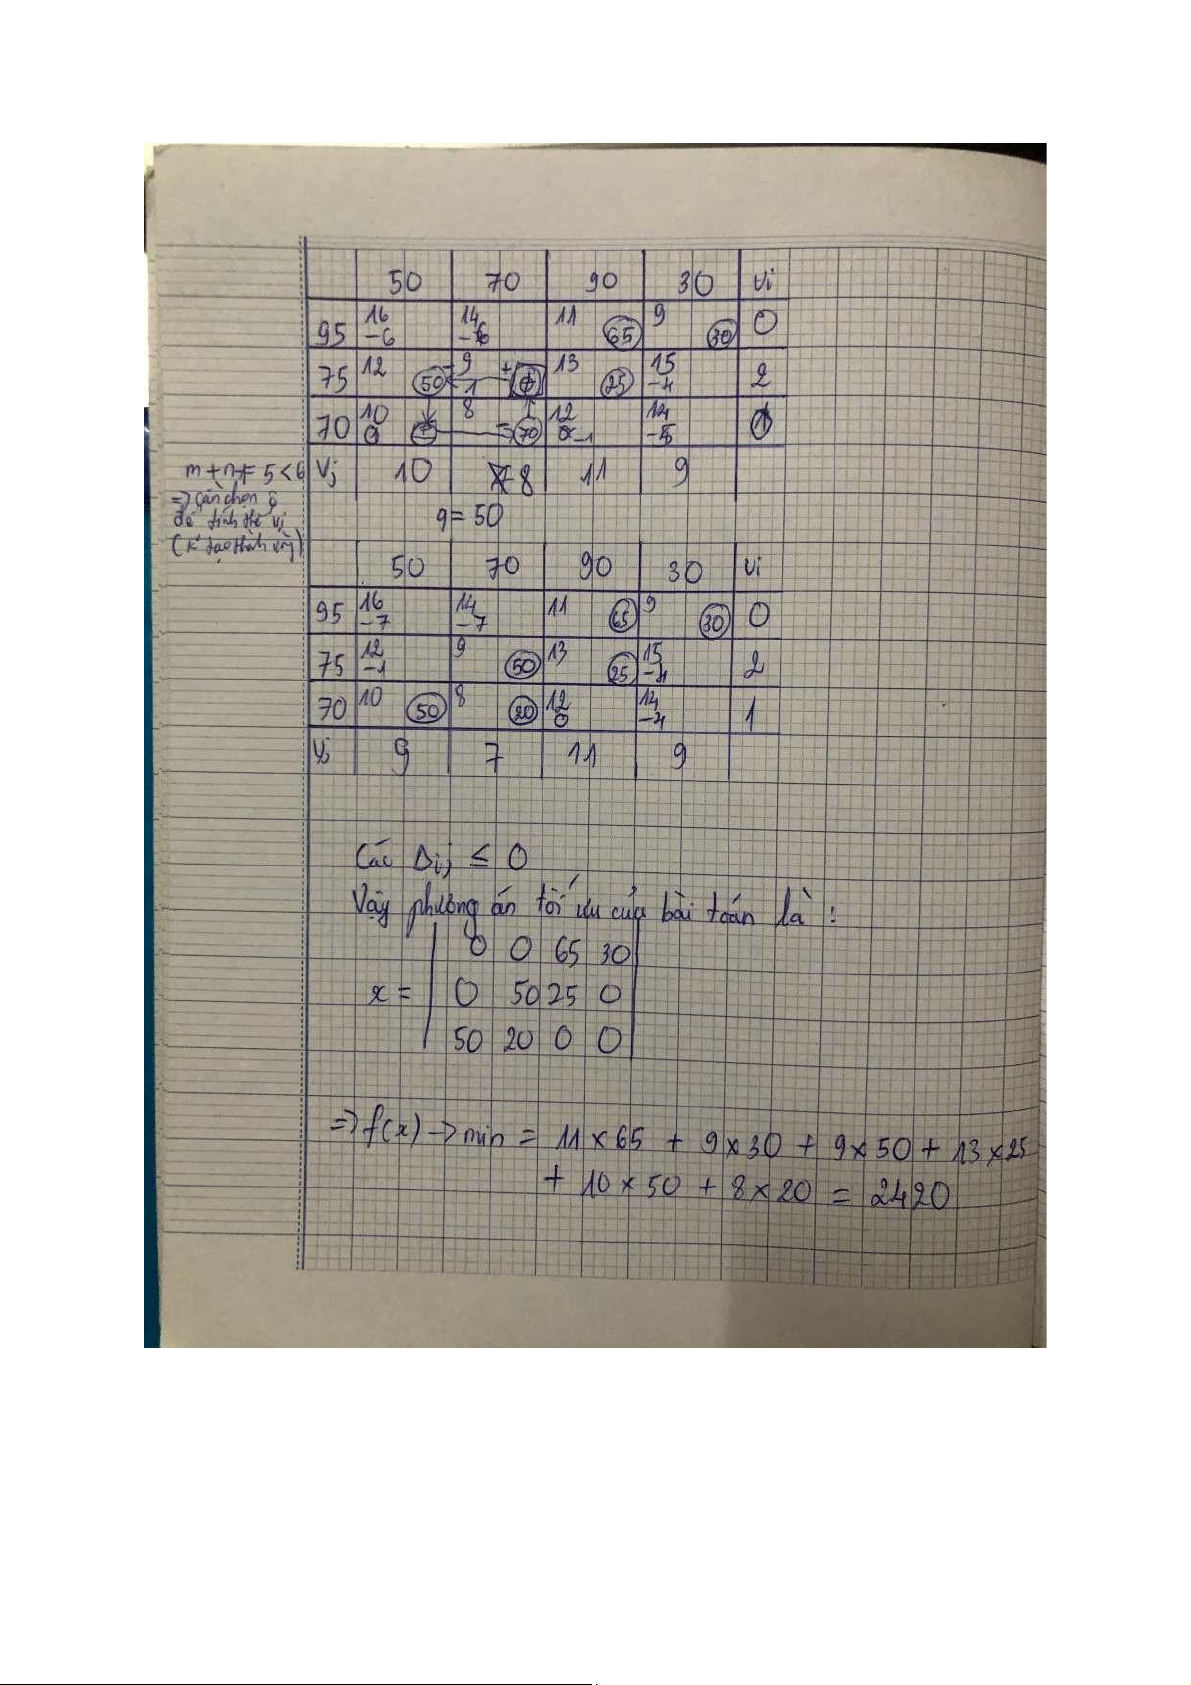 50 70 90 30 Ui
95 16 -6 14 -6 11 65 9 30 0
75 12 50 - 9 1 + + 13 25 15 -4 2
70 10 0 + 8 - 70 12 -1 14 -5 0
Vj 10 8 11 9
m+n-1 = 5 < 6
=> Cần chọn ô
để tính thế vị
(K tạo thành vòng)
q = 50
50 70 90 30 Ui
95 16 -7 14 -7 11 65 9 30 0
75 12 -1 9 50 13 25 15 -4 2
70 10 50 8 20 12 0 14 -4 1
Vj 9 7 11 9
Các Δij ≤ 0
Vậy phương án tối ưu của bài toán là :
0 0 65 30
x = 0 50 25 0
50 20 0 0
=> f(x) -> min = 11 x 65 + 9 x 30 + 9 x 50 + 13 x 25
+ 10 x 50 + 8 x 20 = 2420